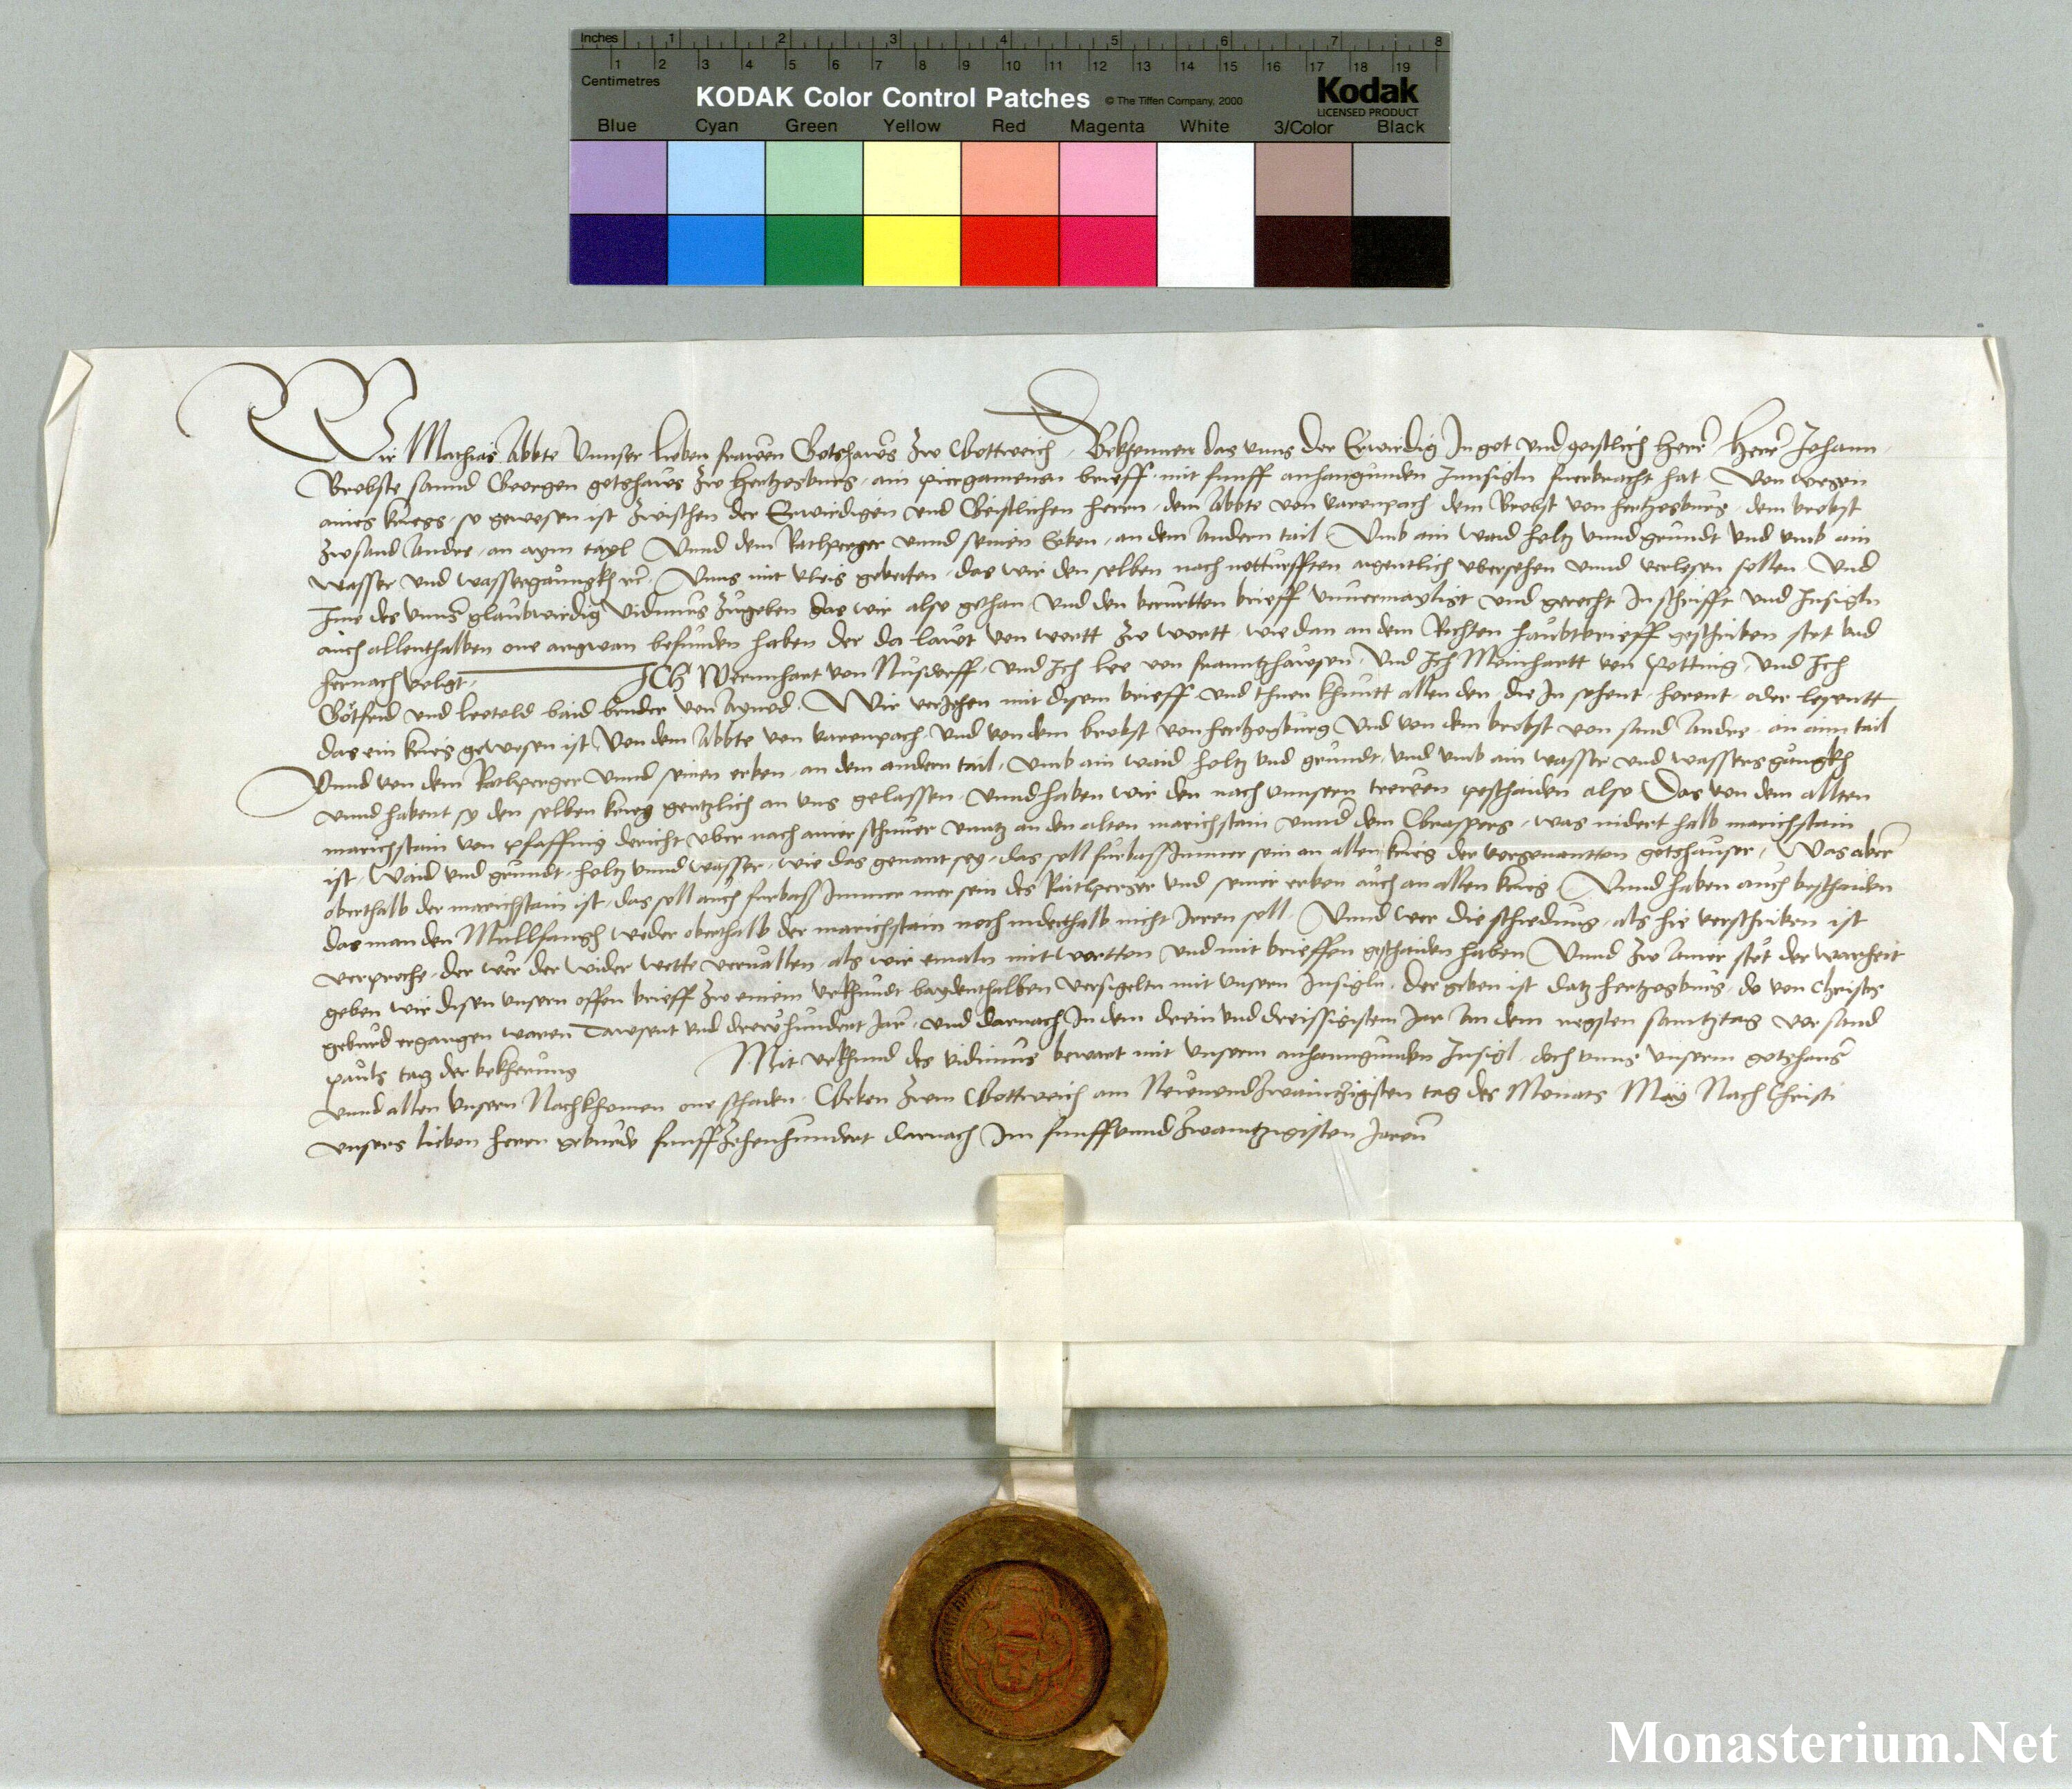 Inches 1 2 3 4 5 6 7 8
1 2 3 4 5 6 7 8 9 10 11 12 13 14 15 16 17 18 19
Centimetres
KODAK Color Control Patches © The Tiffen Company, 2000 Kodak
LICENSED PRODUCT
Blue Cyan Green Yellow Red Magenta White 3/Color Black
Wir Mathias Abbte Unnser lieben frawen Gotshaws zw Gottweich Bekhennen das unns der Erwirdig In got und geistlich Herr Herr Johann
Brobste sannd Georgen gotzhaws zw Hertzogburg ain piergamenen brieff mit funff anhangunden Innsigln fuerbracht hat Von wegen
aines kriegs so gewesen ist zwischen der Erwirdigen und Geistlichen herrn dem Abbte von varenpach dem Brobst von hertzogburg dem brobst
zw sand Andre an aym tayl Unnd dem Ratlperger unnd seinen Erben an dem andern tail Umb ain waid holtz unnd grundt und umb ain
wasser und wassergaungkh etc Unns mit vleis gebetten das wir den selben nach notturfften aigentlich ubersehen unnd verlesen sollen Und
Ime des unns glaubwirdig vidimus zugeben das wir also gethan Und den berurtten brieff unvermayligt und gerecht In schrifft und Insigln
auch allenthalben one argwan befunden haben der da lawt von wortt zw wortt wie dan an dem Rechten haubtbrieff geschriben stet und
hernach volgt ICH Wernnhart von Nusdorff Und Ich leo von frauntzhawsen Und Ich Meinhartt von Potting Und Ich
Gotfrid und leotold baid bruder von Aynod Wir veriehen mit disem brieff und thuen khuntt allen den die In sehent horent oder lesentt
das ein krieg gewesen ist Von dem Abbte von varenpach und von dem brobst von hertzogburg Und von dem brobst von sand Andre an aim tail
Unnd von dem Ratlperger unnd seinen erben an dem andern tail umb ain waid holtz und grundt und umb ain wasser und wassersgangkh
unnd habent sy den selben krieg gentzlich an uns gelassen unnd haben wir den nach unnsern trewen peschaiden also Das von dem alten
marichstain von pfaffing dericht uber nach ainer schnuer unntz an den alten marichstain unnd dem Graspers was nidert halb marichstain
ist Waid und grundt holtz unnd wasser wie das genant sey das soll furbass Immer sein an allen krieg der vorgenantten gotshauser Was aber
oberthalb der marichstain ist das soll auch furbass Immer mer sein des Ratlperger und seiner erben auch an allen krieg Unnd haben auch beschaiden
das man den Mullfangh weder oberthalb der marichstain noch niderthalb nicht Irren soll Unnd wer die schiedung als hie verschriben ist
verpreche der wer der wider wette vervallen als wir emaln mit wortten und mit brieffen geschaiden haben Unnd zw ainer stet der warheit
geben wir disen unsern offen brieff zw einem urkhundt baydenthalben versigelten mit unsern Insigln Der geben ist datz hertzogburg do von Christes
geburd ergangen waren Tawsent und drewhundert Jar und darnach In dem drein und dreissigistem Jar An dem negsten sambtztag vor sand
pauls tag der bekherung Mit urkhund des vidimus bewart mit unserm anhanngunden Insigl doch unns unserm gotshaus
unnd allen unsern Nachkhomen one schaden Geben zum Gottweich am Newenundzwainczigisten tag des Monats May Nach Christi
unsers lieben herrn geburde funffzehenhundert darnach Im funffunndzwantzigisten Jaren
Monasterium.Net